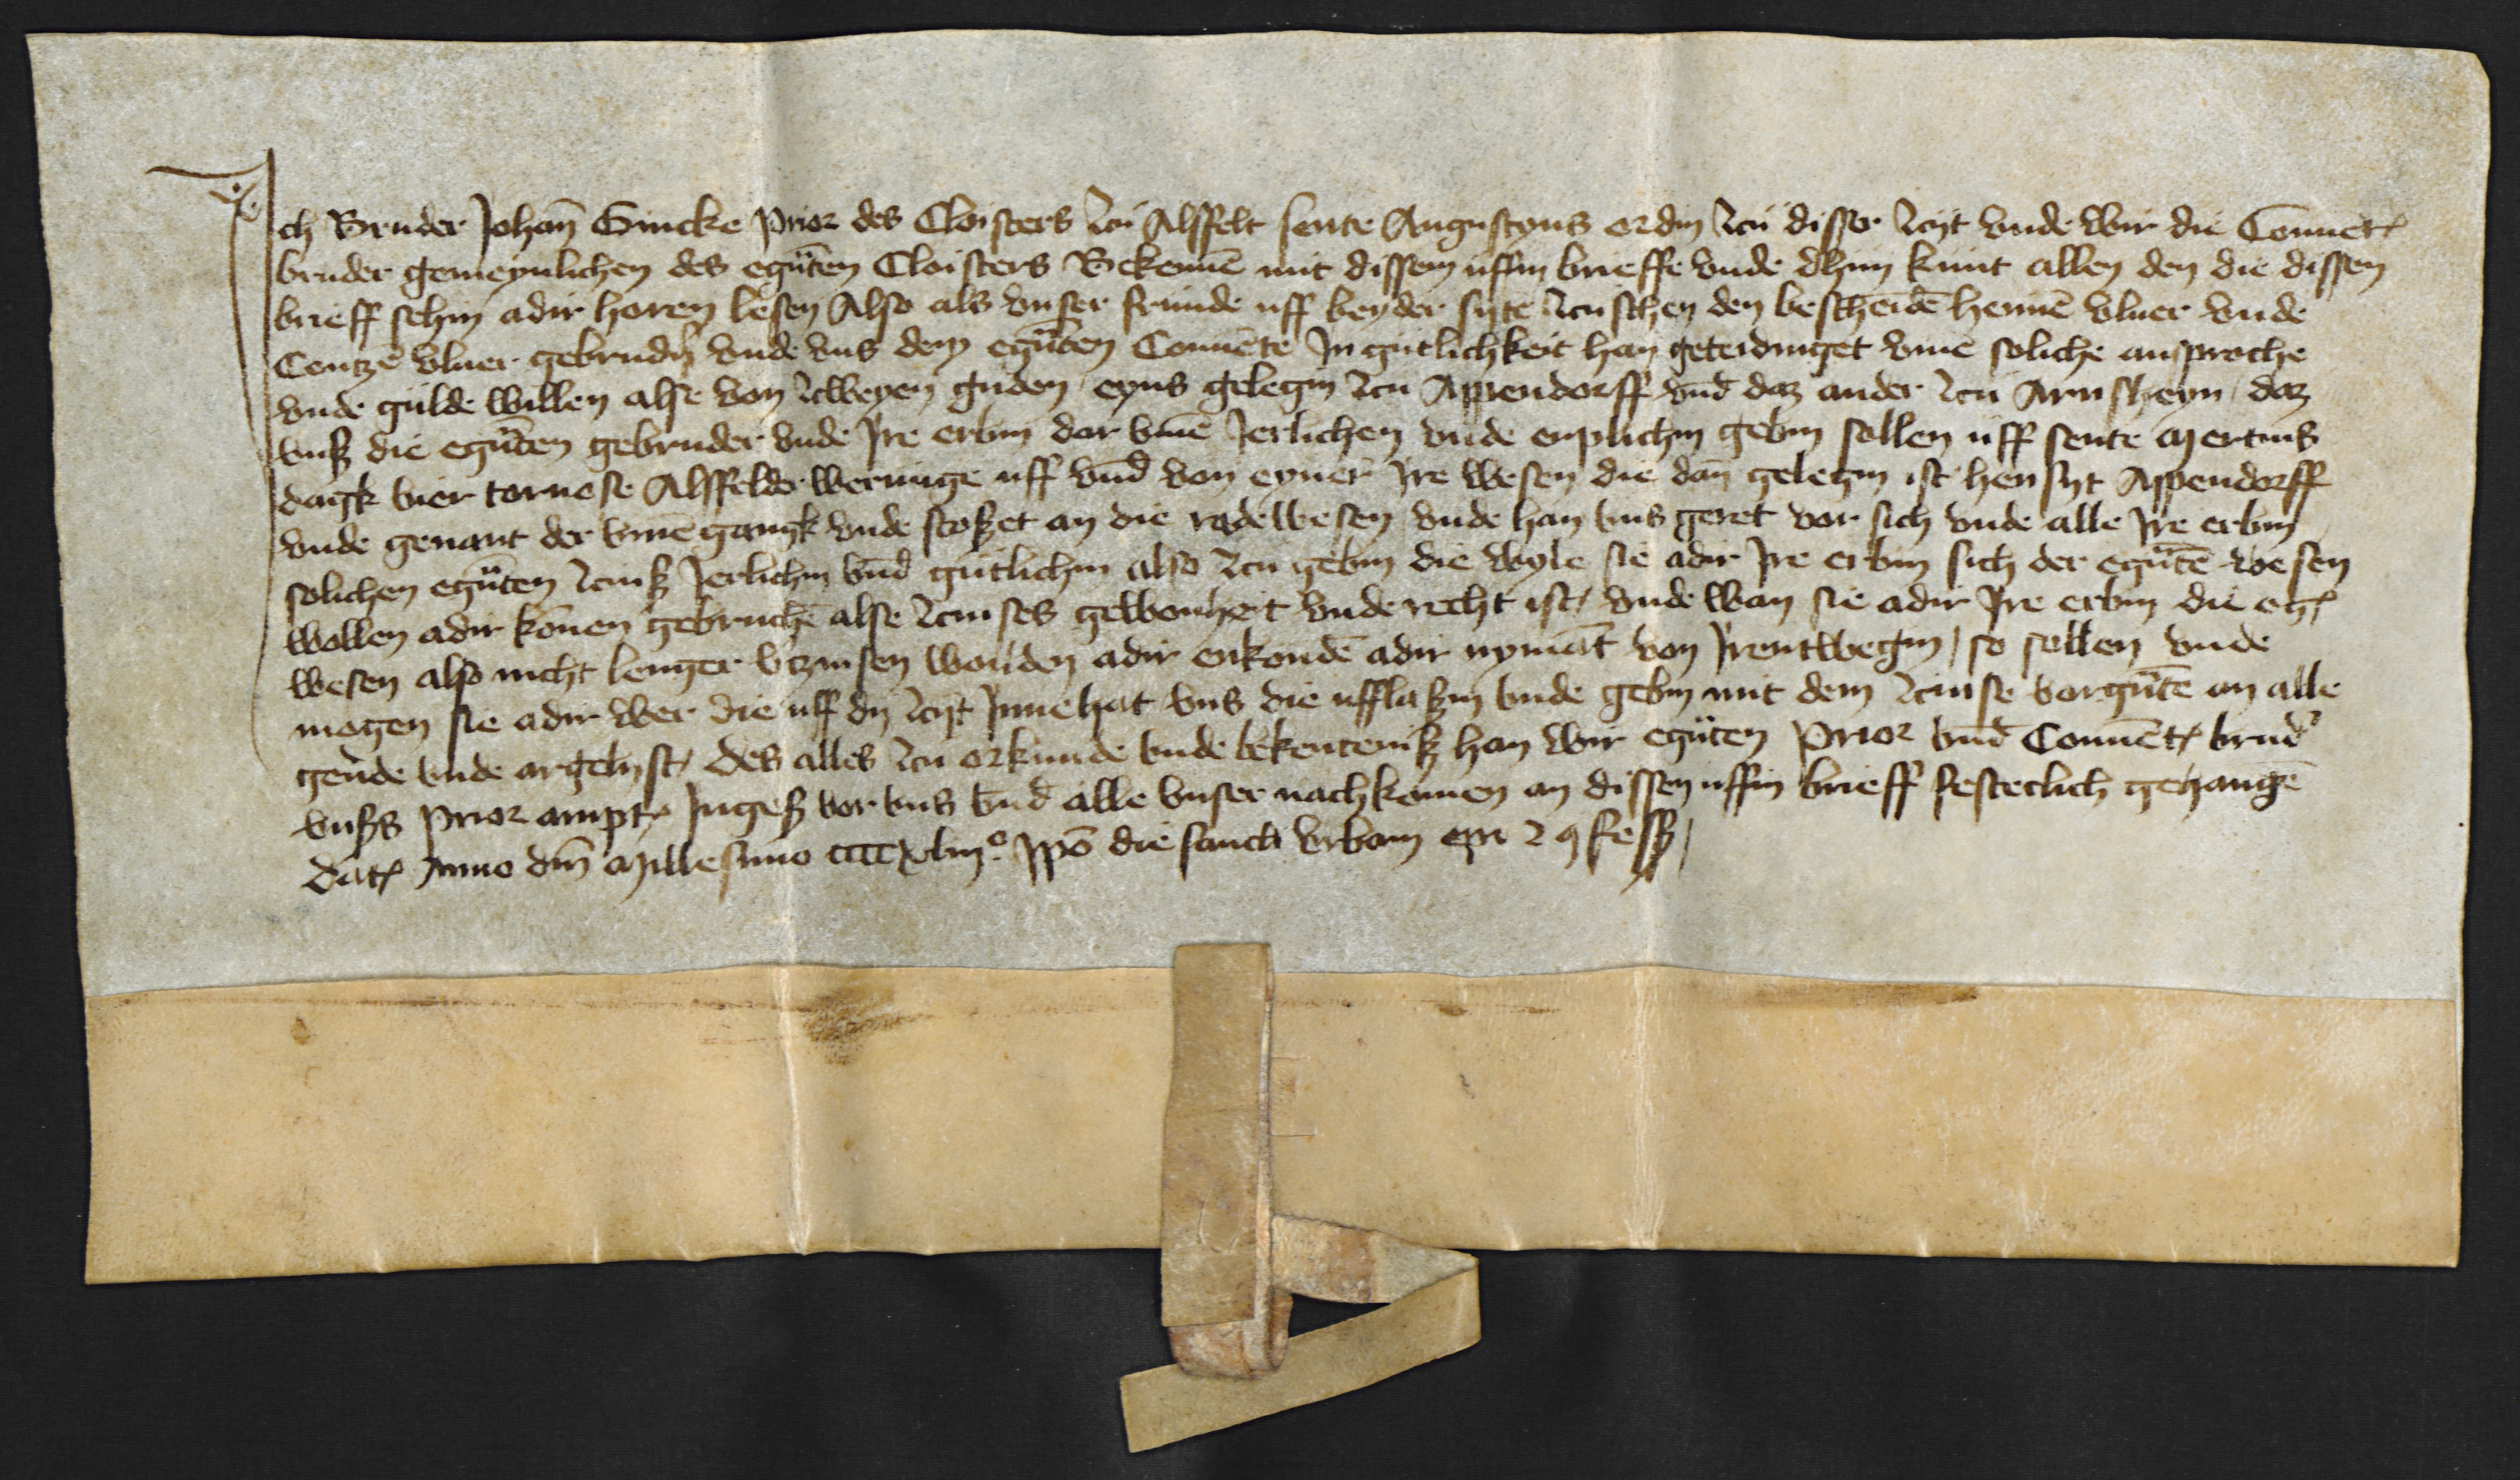 Ich Bruder Johan̄ Gincke Prior des Cloisters zcu Alsffelt sente Augustyns ordin zcu disser zcyt vnde wir die Conuet
bruder gemeynlichen des egn̄ten Cloisters Bekennē mit dissem uffin brieffe vnde dhun kunt allen den die dissen
brieff sehin adir horen lesen Also als vnser frunde uff beyder syte zcuschen den bescheidē hennē vluer vnde
Contzē vluer gebrudn̄ vnde vns dem egn̄ten Conuēte In gutlichkeit han geteidinget vmē soliche ansproche
vnde gulde willen alse von zcweyen guden eyns gelegin zcu Appendorff vnd̄ daz ander zcu Arnsheyn daz
vnß die egn̄ten gebruder vnde Ire erbin dar vmē Jerlichen vnde erplichin gebin sollen uff sente Mertins
dagk vier tornose Alsffelder weringe uff vnd̄ von eyner Ire wesen die dan̄ gelegin ist hensyt Appendorff
vnde genant der vmēgangk vnde stoßet an die rodewesen vnde han vns geret vor sich vnde alle Ire erbin
solichen egn̄ten zcinß Jerlichin vnd̄ gutlichin also zcu gebin die wyle sie adir Ire erbin sich der egn̄tē wesen
wollen adir konen gebruchē alse zcinses gewonheit vnde recht ist vnde wan sie adir Ire erbin die egn̄
wesen also nicht lenger vrzinsen wolden adir enkondē adir nymāt von Irentwegin so sollen vnde
mogen sie adir wer die uff dy zcyt Innehat vns die ufflaßin vnde gebin mit dem zcinse vorgn̄tē an alle
geūde vnde argelyst Des alles zcu orkunde vnde bekenteniß han wir egn̄ten Prior vnd̄ Conuēt brud̄
vnßs Prior ampt Ingeß vor vns vnd̄ alle vnser nachkomen an dissen uffin brieff festeclich gehangē
Dat Anno dn̄i Millesimo ccccxlviiȷ° Ip̄o die sancti vrbani ep̄i